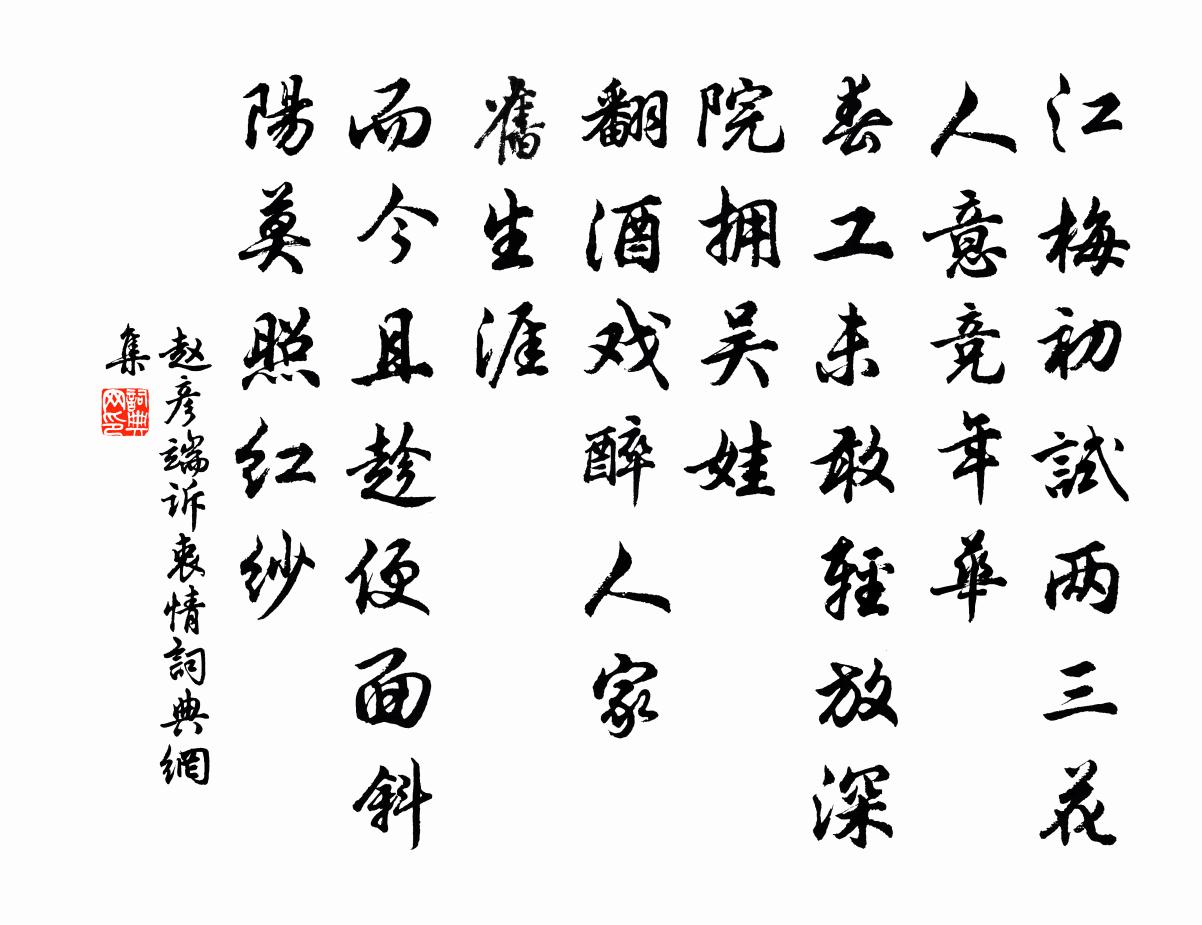 江梅初試两三花
人意竞年華
春工未敢輕放深
院拥吴娃
翻酒戏醉人家
舊生涯
而今且趁便面斜
陽莫照红纱
赵彦端诉衷情詞典網
集
詞典网印